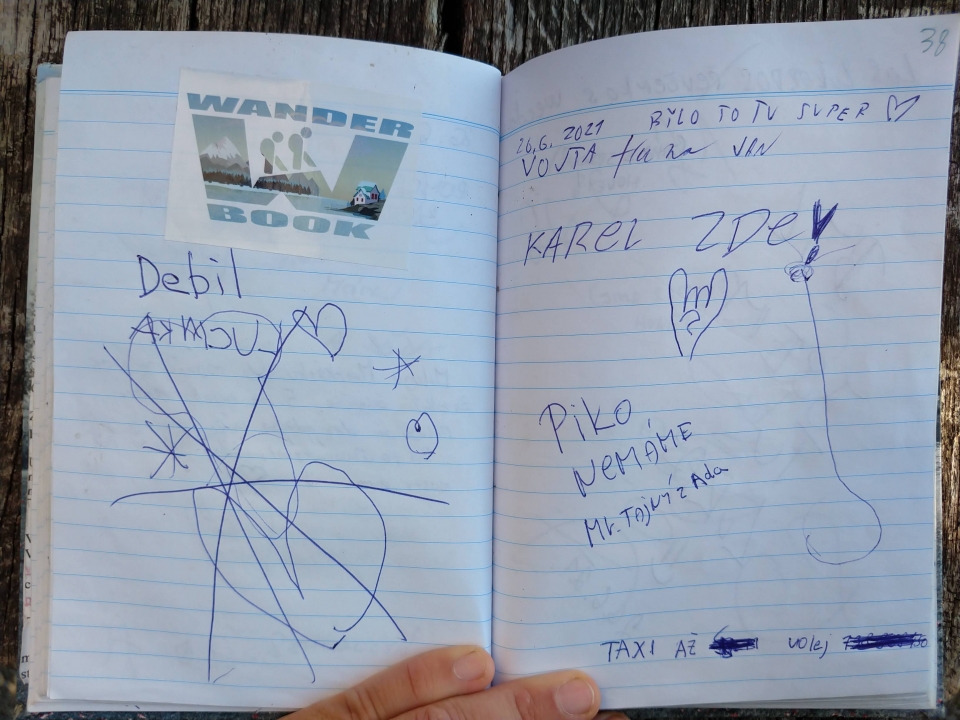 WANDER
BOOK
Debil
LUCINKA
38
26.6.2021 BYLO TO TU SUPER
VOJTA
KAREL ZDE
PiKO
NEMÁME
Mr. Tajný z Ada
TAXI AŽ volej